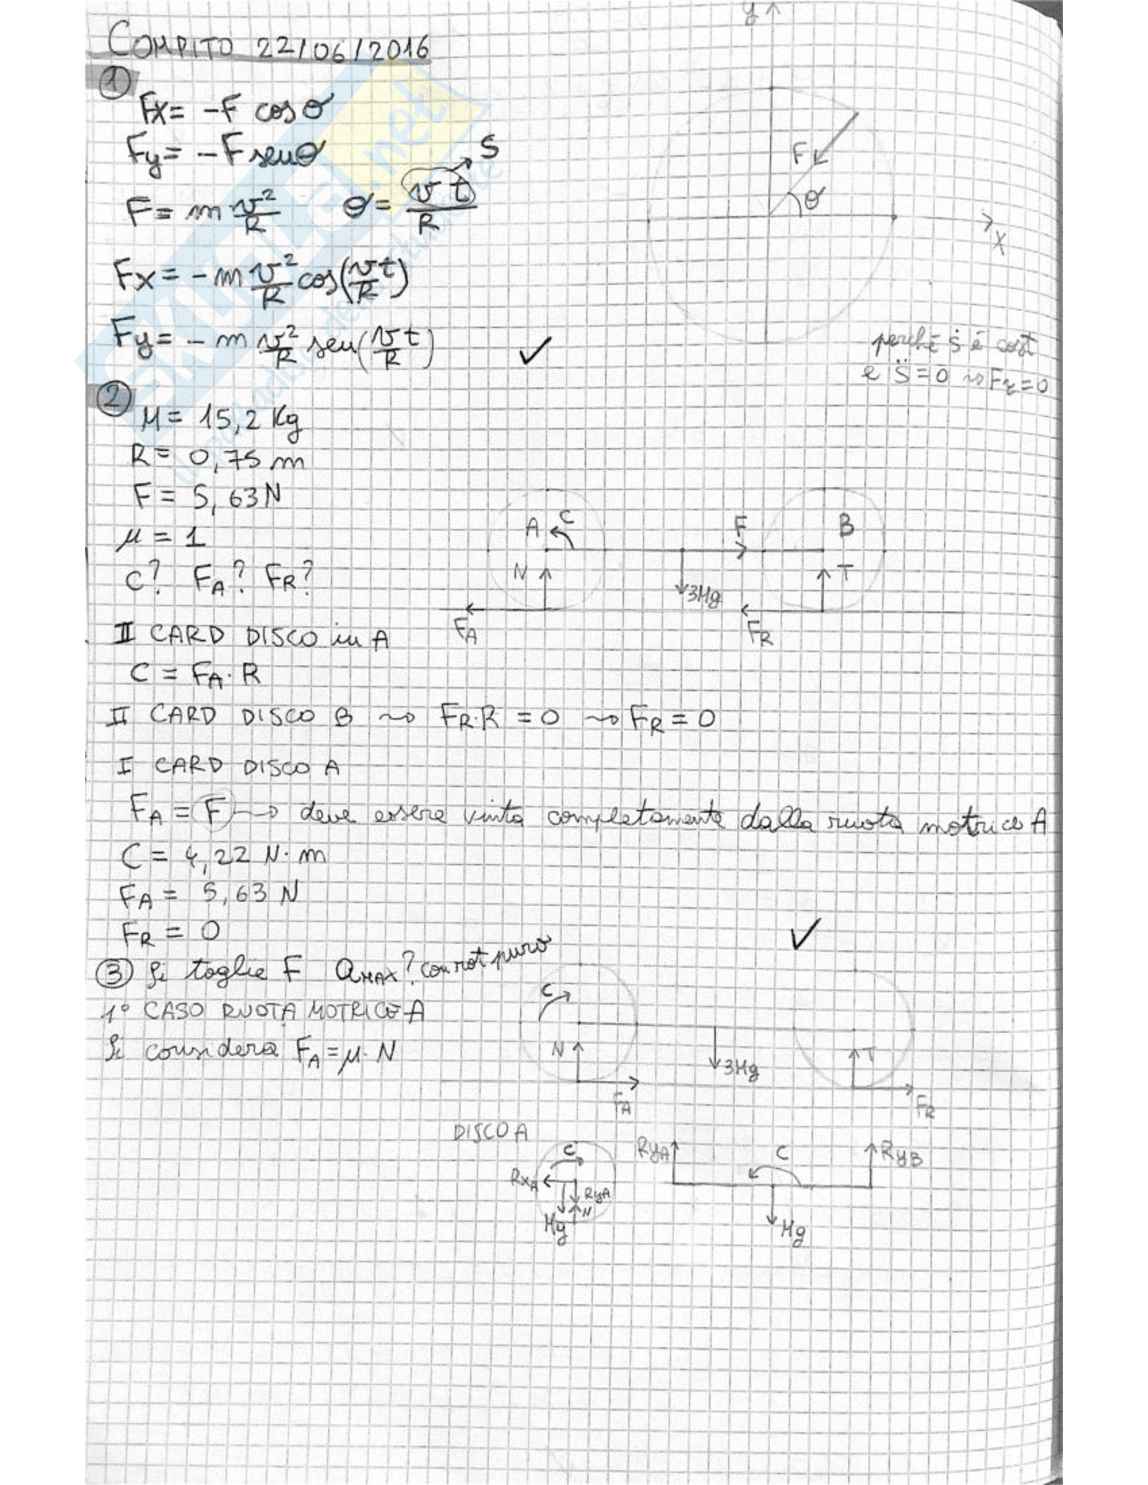 COMPITO 22/06/2016
①
Fx = -F cosθ
Fy = -F senθ
F = m v²/R    θ = vt/R → S
Fx = -m v²/R cos(vt/R)
Fy = -m v²/R sen(vt/R) ✓
y
F
θ
x
perché ṡ è cost
e s̈=0 ⇝ Fτ=0
②
M = 15,2 Kg
R = 0,75 m
F = 5,63 N
μ = 1
C? FA? FR?
A C F B
N 3Mg T
FA FR
II CARD DISCO in A
C = FA·R
II CARD DISCO B ⇝ FR·R = 0 ⇝ FR = 0
I CARD DISCO A
FA = F → deve essere vinta completamente dalla ruota motrice A
C = 4,22 N·m
FA = 5,63 N
FR = 0 ✓
③ Si toglie F aMAX? con rot puro
1° CASO RUOTA MOTRICE A
Si considera FA = μ·N
C
N 3Mg T
FA FR
DISCO A
C
RxA RyA
Mg N
RyA C RyB
Mg
SKUOLA.net